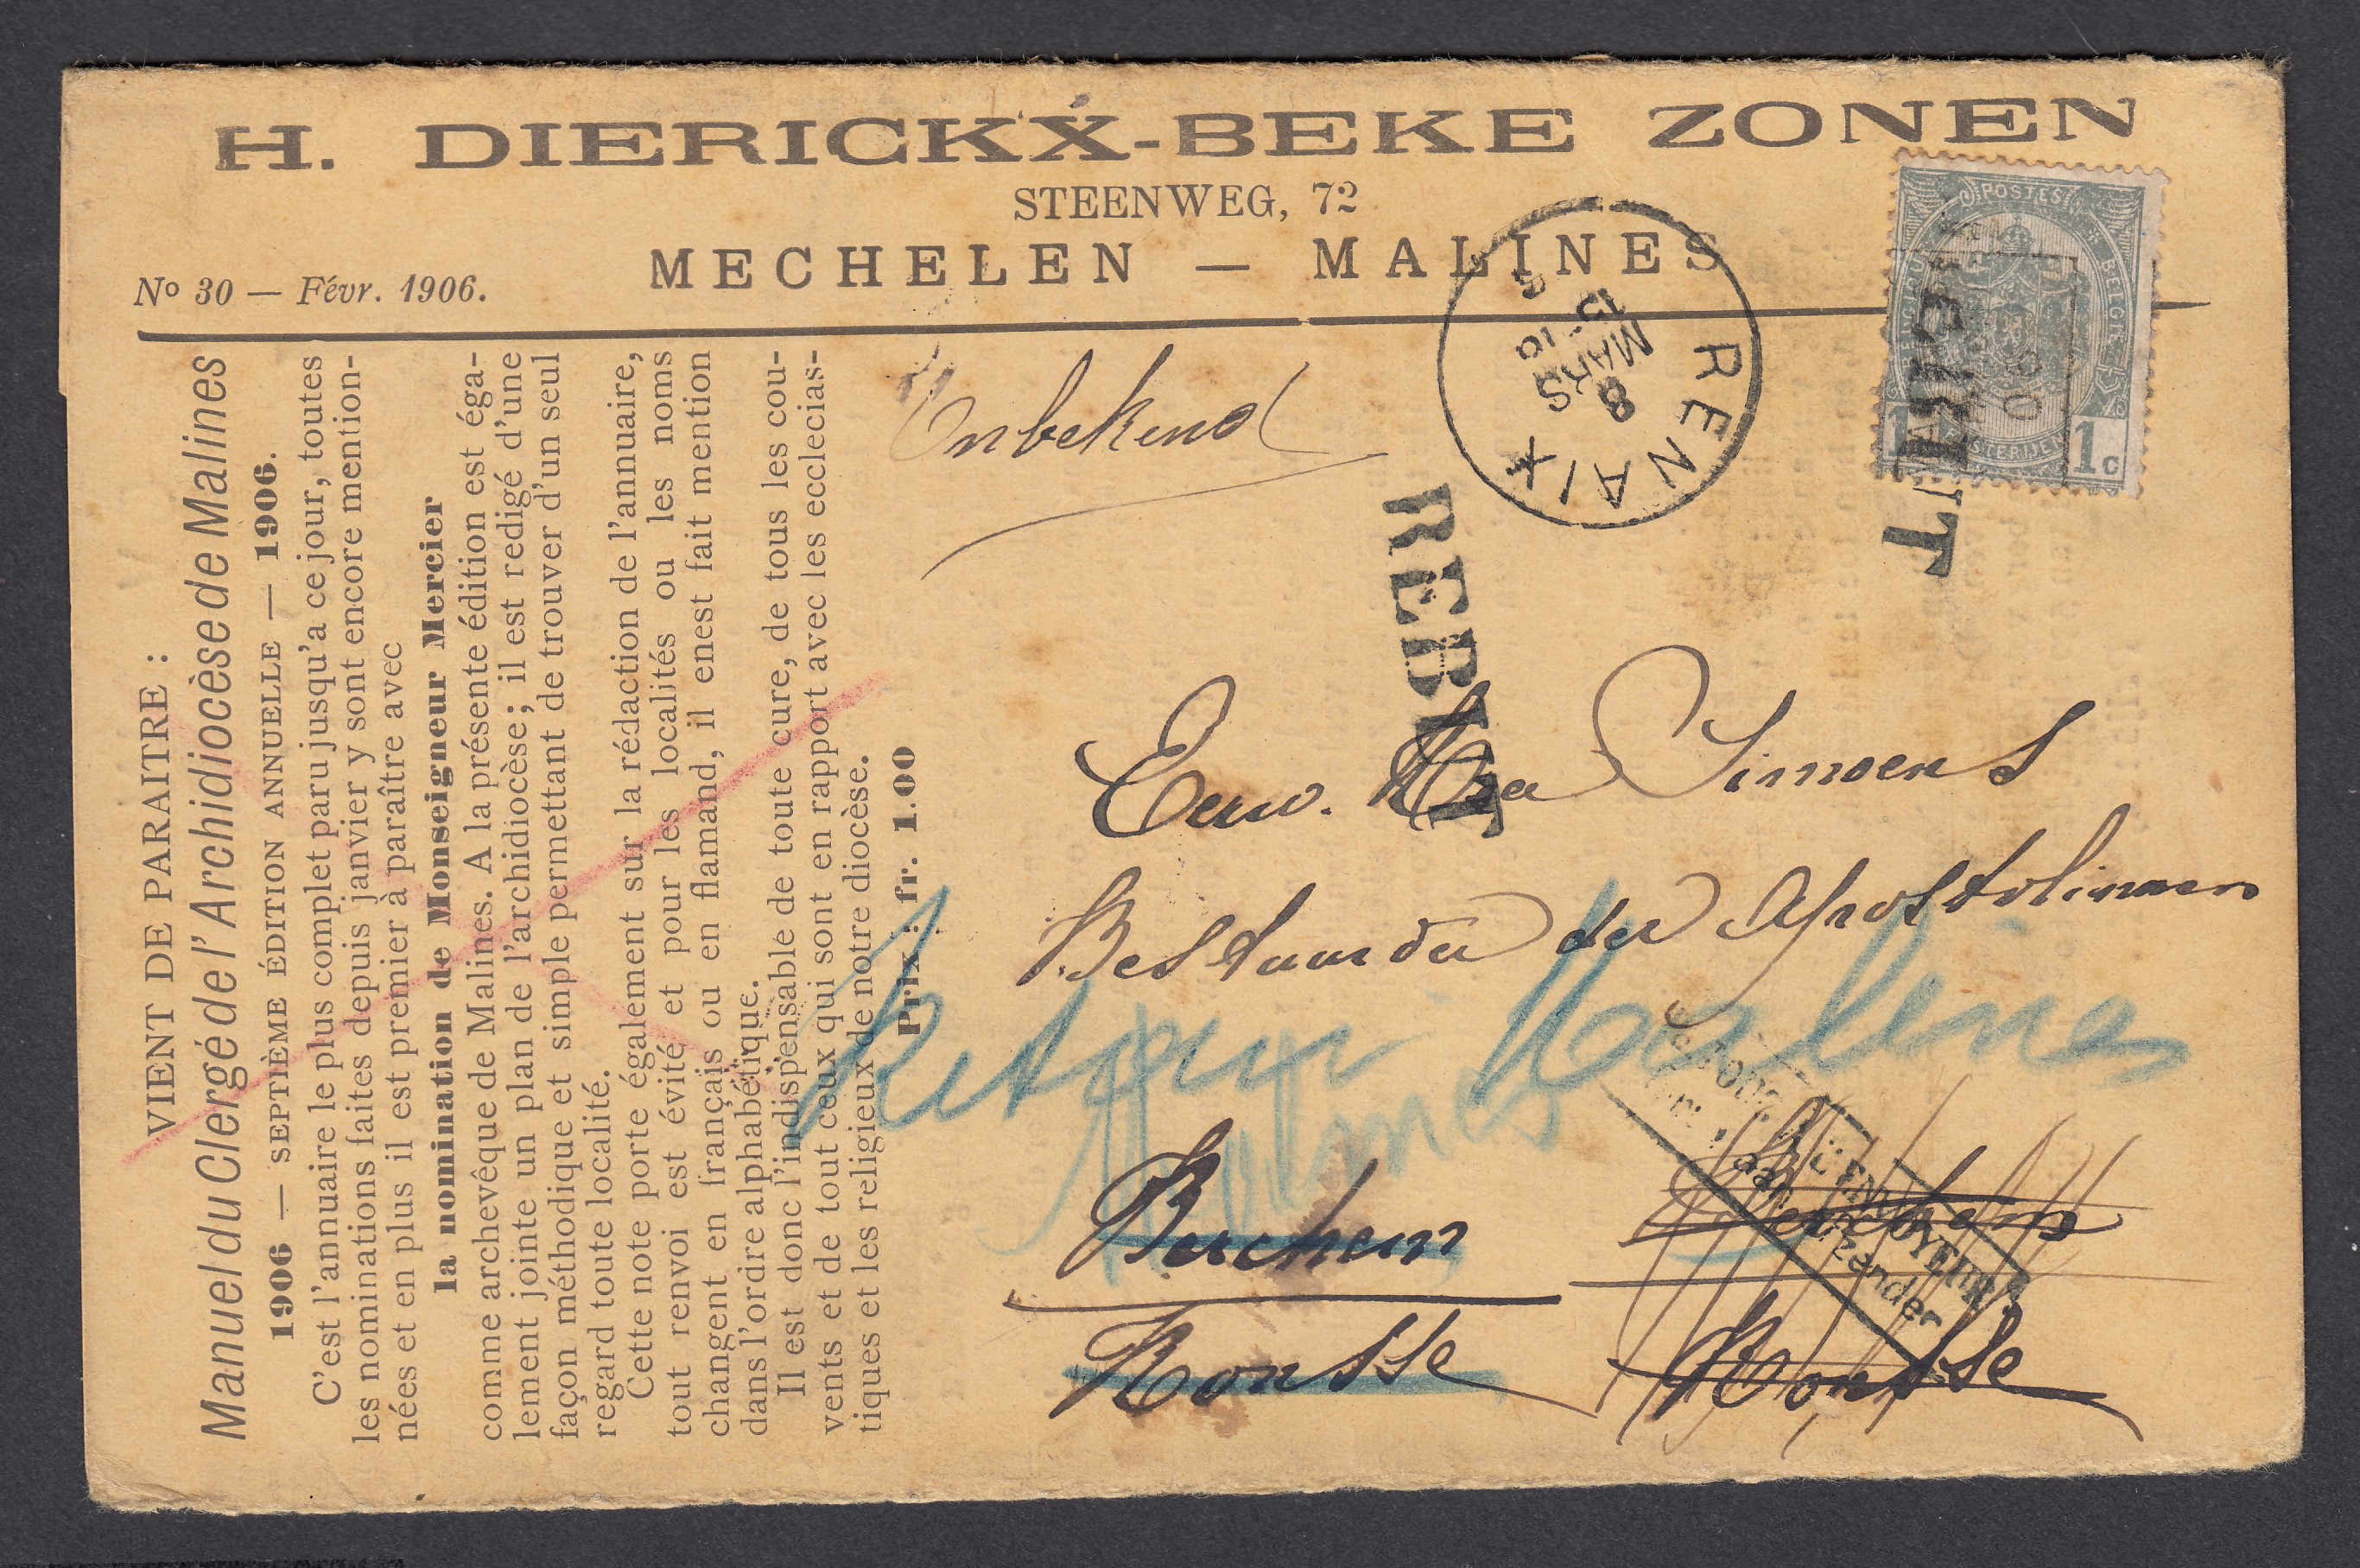 H. DIERICKX-BEKE ZONEN
STEENWEG, 72
MECHELEN — MALINES
Nº 30 — Févr. 1906.
VIENT DE PARAITRE :
Manuel du Clergé de l'Archidiocèse de Malines
1906 — SEPTIÈME ÉDITION ANNUELLE — 1906.
C'est l'annuaire le plus complet paru jusqu'a ce jour, toutes
les nominations faites depuis janvier y sont encore mention-
nées et en plus il est premier à paraître avec
la nomination de Monseigneur Mercier
comme archevêque de Malines. A la présente édition est éga-
lement jointe un plan de l'archidiocèse; il est redigé d'une
façon méthodique et simple permettant de trouver d'un seul
regard toute localité.
Cette note porte également sur la rédaction de l'annuaire,
tout renvoi est évité et pour les localités ou les noms
changent en français ou en flamand, il enest fait mention
dans l'ordre alphabétique.
Il est donc l'indispensable de toute cure, de tous les cou-
vents et de tout ceux qui sont en rapport avec les ecclecias-
tiques et les religieux de notre diocèse.
Prix : fr. 1.00
Onbekend
RENAIX
8
MARS
POSTES
BELGIQUE
BELGIE
1
1c
06
REBUT
Eerw. Hr Simoens
Bestuurder der Apostolinnen
Retour Malines
Malines
Berchem
Ronsse
Berchem
Ronsse
L'ENVOYEUR
aan afzender